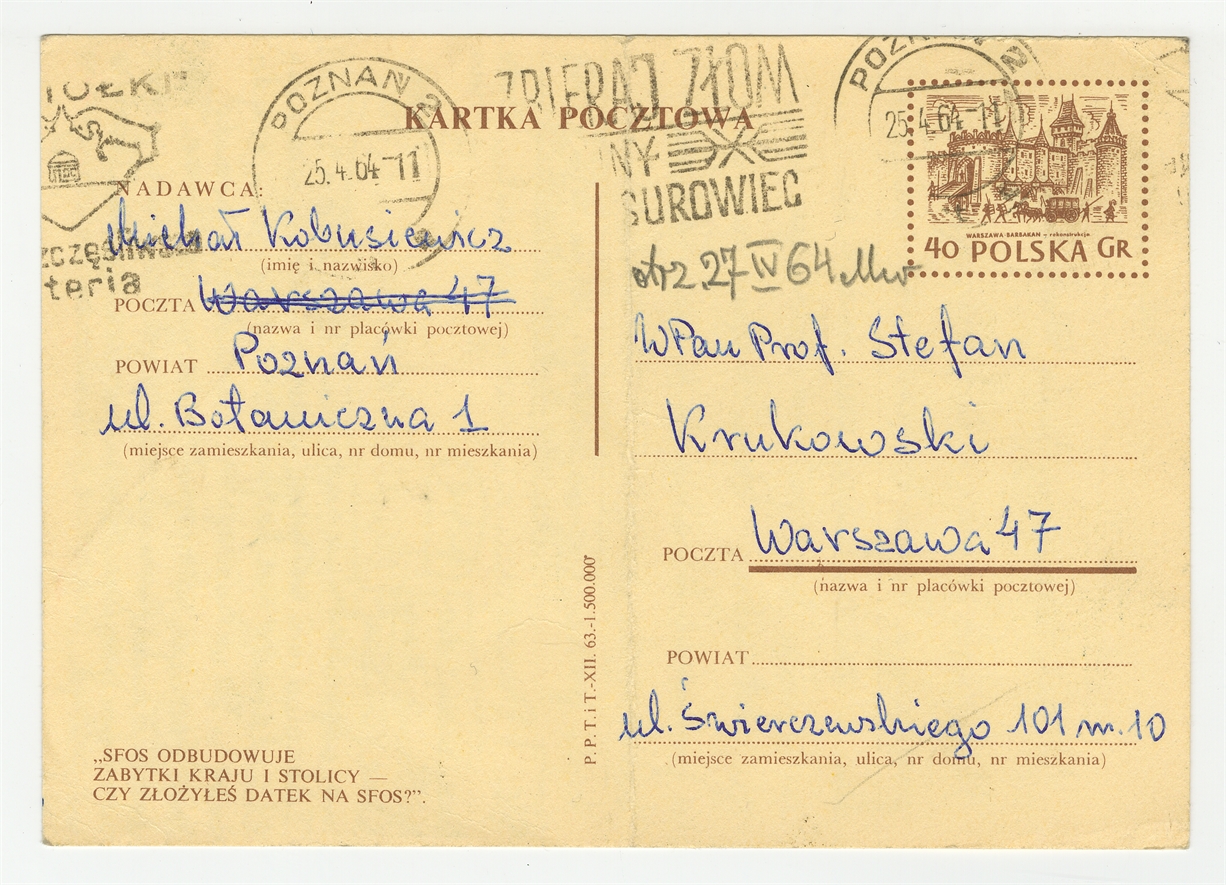 KARTKA POCZTOWA
POZNAŃ 2
25.4.64-11
ZBIERAJ ZŁOM
NY
SUROWIEC
POZNAŃ 2
25.4.64-11
teria
WARSZAWA-BARBAKAN - rekonstrukcja
40 POLSKA GR
NADAWCA:
Michał Kobusiewicz
(imię i nazwisko)
POCZTA Warszawa 47
(nazwa i nr placówki pocztowej)
POWIAT Poznań
ul. Botaniczna 1
(miejsce zamieszkania, ulica, nr domu, nr mieszkania)
„SFOS ODBUDOWUJE
ZABYTKI KRAJU I STOLICY —
CZY ZŁOŻYŁEŚ DATEK NA SFOS?".
P. P. T. i T.-XII. 63.-1.500.000'
otrz. 27 IV 64
WPan Prof. Stefan
Krukowski
POCZTA Warszawa 47
(nazwa i nr placówki pocztowej)
POWIAT
ul. Świerczewskiego 101 m. 10
(miejsce zamieszkania, ulica, nr domu, nr mieszkania)